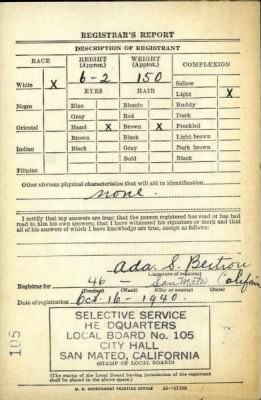 REGISTRAR'S REPORT
DESCRIPTION OF REGISTRANT
RACE HEIGHT (Approx.) WEIGHT (Approx.) COMPLEXION
White X 6-2 150 Sallow
EYES HAIR Light X
Negro Blue Blonde Ruddy
Gray Red Dark
Oriental Hazel X Brown X Freckled
Brown Black Light brown
Indian Black Gray Dark brown
Bald Black
Filipino
Other obvious physical characteristics that will aid in identification
none.
I certify that my answers are true; that the person registered has read or has had
read to him his own answers; that I have witnessed his signature or mark and that
all of his answers of which I have knowledge are true, except as follows:
Ada S. Bertron
(Signature of registrar)
Registrar for 46 - San Mateo California
(Precinct) (Ward) (City or county) (State)
Date of registration Oct. 16 - 1940.
105
SELECTIVE SERVICE
HE DQUARTERS
LOCAL BOARD No. 105
CITY HALL
SAN MATEO, CALIFORNIA
(STAMP OF LOCAL BOARD)
(The stamp of the Local Board having jurisdiction of the registrant
shall be placed in the above space.)
U. S. GOVERNMENT PRINTING OFFICE